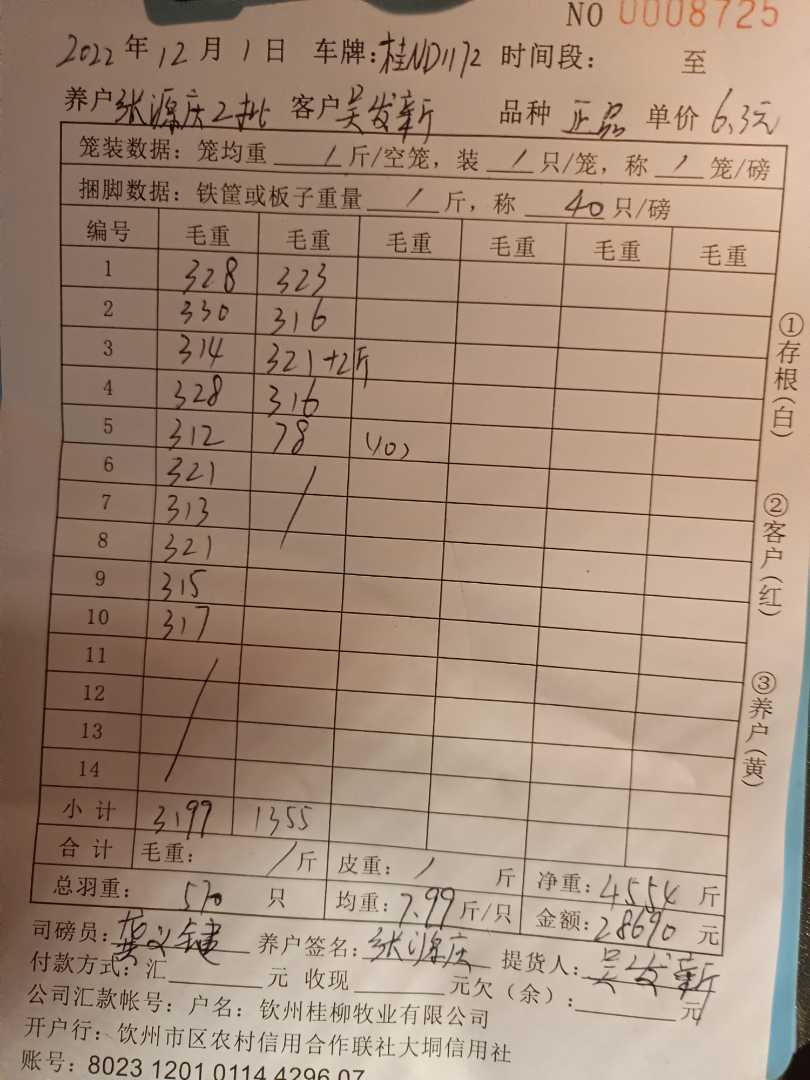 NO 0008725
2022年12月1日 车牌:桂ND1172 时间段: 至
养户 张源庆2批 客户 吴发新 品种 正品 单价 6.3元
笼装数据:笼均重 / 斤/空笼,装 / 只/笼,称 / 笼/磅
捆脚数据:铁筐或板子重量 / 斤,称 40 只/磅
编号 毛重 毛重 毛重 毛重 毛重 毛重
1 328 323
2 330 316
3 314 321+2斤
4 328 316
5 312 78 (10)
6 321 /
7 313
8 321
9 315
10 317
11 /
12
13
14
小计 3199 1355
合计 毛重: / 斤 皮重: / 斤 净重: 4554 斤
总羽重: 570 只 均重: 7.99 斤/只 金额: 28690 元
司磅员: 龚义键 养户签名: 张源庆 提货人: 吴发新
付款方式:汇 元 收现 元欠(余): 元
公司汇款帐号:户名:钦州桂柳牧业有限公司
开户行:饮州市区农村信用合作联社大垌信用社
账号:8023 1201 0114 4296 07
①存根(白)
②客户(红)
③养户(黄)